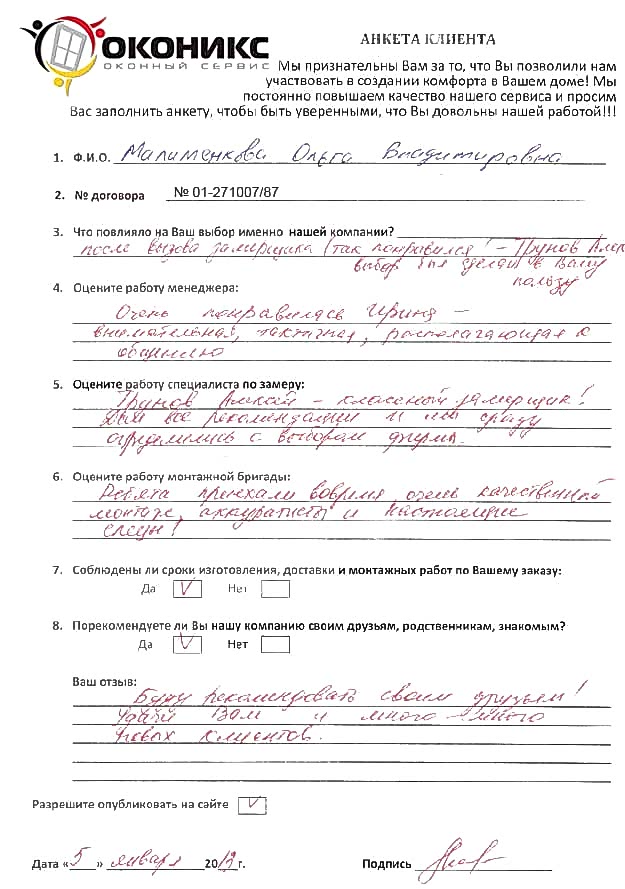 ОКОНИКС
ОКОННЫЙ СЕРВИС
АНКЕТА КЛИЕНТА
Мы признательны Вам за то, что Вы позволили нам
участвовать в создании комфорта в Вашем доме! Мы
постоянно повышаем качество нашего сервиса и просим
Вас заполнить анкету, чтобы быть уверенными, что Вы довольны нашей работой!!!
1. Ф.И.О. Малименкова Ольга Владимировна
2. № договора № 01-271007/87
3. Что повлияло на Ваш выбор именно нашей компании?
после вызова замерщика (так понравился! – Трунов Алек
выбор был сделан в Вашу
пользу
4. Оцените работу менеджера:
Очень понравилась Ирина –
внимательная, тактичная, располагающая к
общению
5. Оцените работу специалиста по замеру:
Трунов Алексей – классный замерщик!
Дал все рекомендации и мы сразу
определились с выбором фирмы.
6. Оцените работу монтажной бригады:
Ребята приехали вовремя, очень качественный
монтаж, аккуратисты и настоящие
спецы!
7. Соблюдены ли сроки изготовления, доставки и монтажных работ по Вашему заказу:
Да V Нет
8. Порекомендуете ли Вы нашу компанию своим друзьям, родственникам, знакомым?
Да V Нет
Ваш отзыв:
Буду рекомендовать своим друзьям!
Удачи Вам и много-много
новых клиентов.
Разрешите опубликовать на сайте V
Дата «5» января 2013г. Подпись